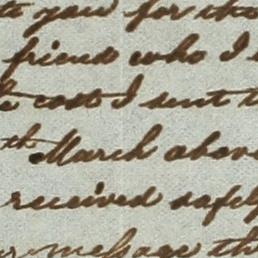 you for the
friend who I
cost I sent
th March above
received safely
message th